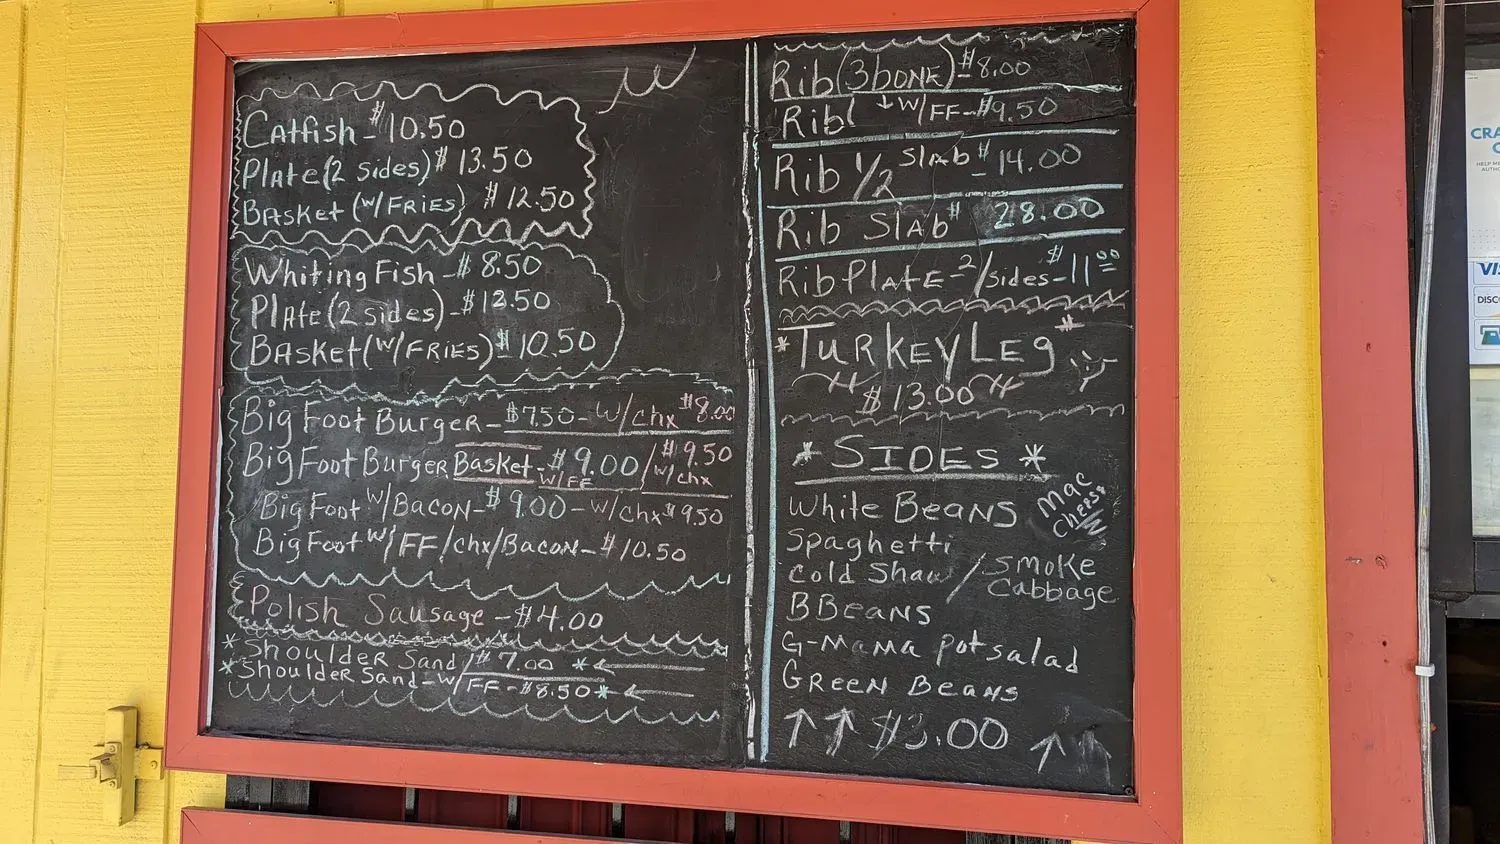 Catfish - $10.50
Plate (2 sides) $13.50
Basket (w/Fries) $12.50
Whiting Fish - $8.50
Plate (2 sides) - $12.50
Basket (w/Fries) $10.50
Big Foot Burger - $7.50 - w/chx $8.00
Big Foot Burger Basket - $9.00 w/FF / $9.50 w/chx
Big Foot w/Bacon - $9.00 - w/chx $9.50
Big Foot w/FF/chx/Bacon - $10.50
Polish Sausage - $4.00
*Shoulder Sand/$7.00 *←
*Shoulder Sand - w/FF - $8.50 *←
Rib (3 bone) $8.00
Rib ↓ w/FF - $9.50
Rib 1/2 Slab $14.00
Rib Slab $28.00
Rib Plate - 2/sides - $11.00
*Turkey Leg*
$13.00
*SIDES*
White Beans
Mac Cheese
Spaghetti
Cold Shaw / Smoke Cabbage
BBeans
G-Mama Pot salad
Green Beans
↑↑ $3.00 ↑
CRA
VIS
DISCO